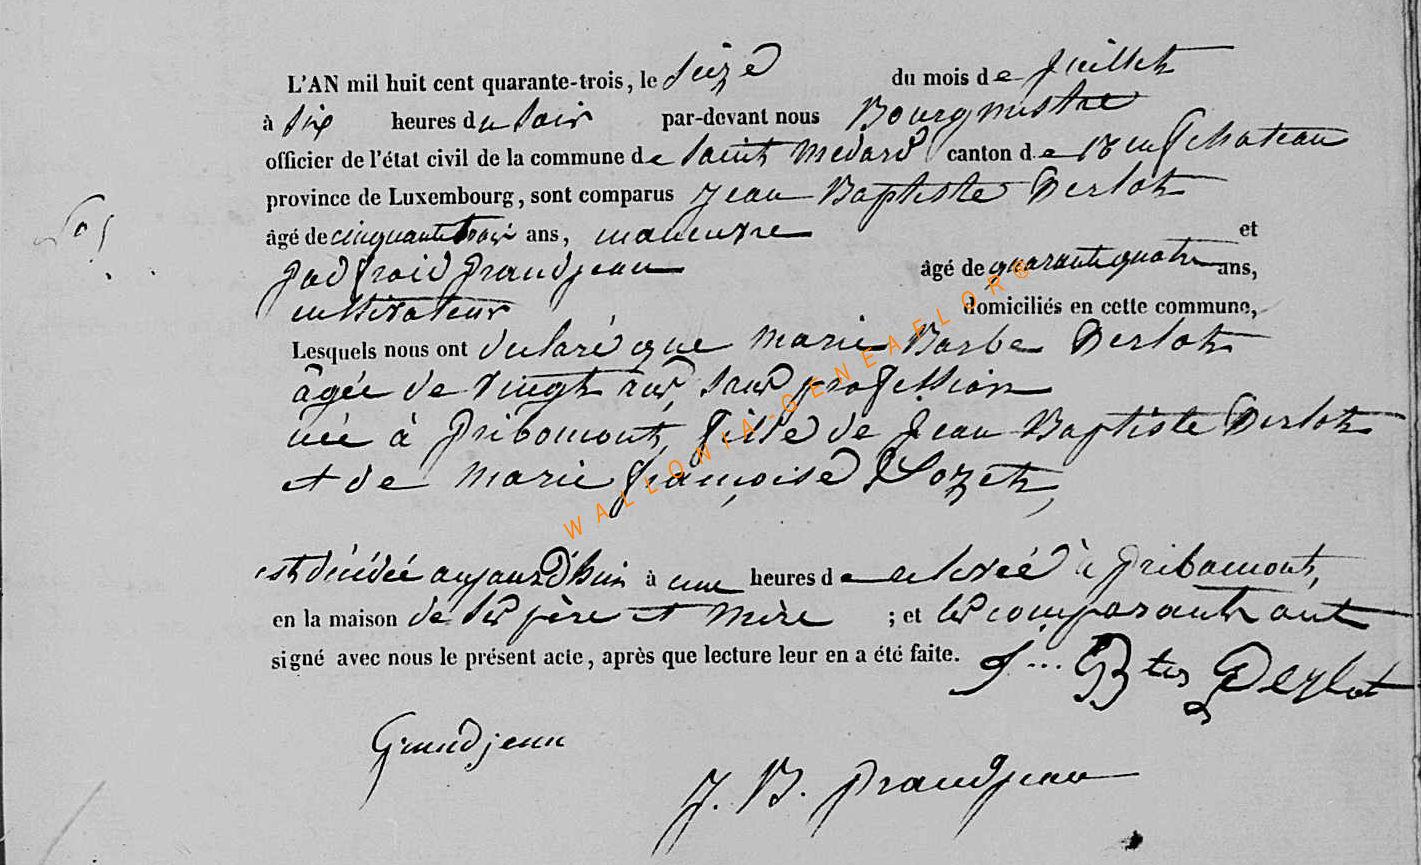 L'AN mil huit cent quarante-trois, le Seize du mois de Juillet
à Six heures du Soir par-devant nous Bourgmestre
officier de l'état civil de la commune de Saint Medard canton de Neufchateau
province de Luxembourg, sont comparus Jean Baptiste Derlot
âgé de cinquante trois ans, maneuvre et
Godfroid Grandjean âgé de quarante quatre ans,
cultivateur domiciliés en cette commune,
Lesquels nous ont declaré que Marie Barbe Derlot
âgée de vingt ans, Sans profession
née à Gribomont, fille de Jean Baptiste Derlot
et de Marie françoise Lozet,
est décédée aujourd'huis à une heures de à Gribomont,
en la maison de Ses père et Mère ; et les comparants ont
signé avec nous le présent acte, après que lecture leur en a été faite. J... Bte Derlot
Grandjean
J. B. Grandjean
WALLONIA-GENEAFLOR©